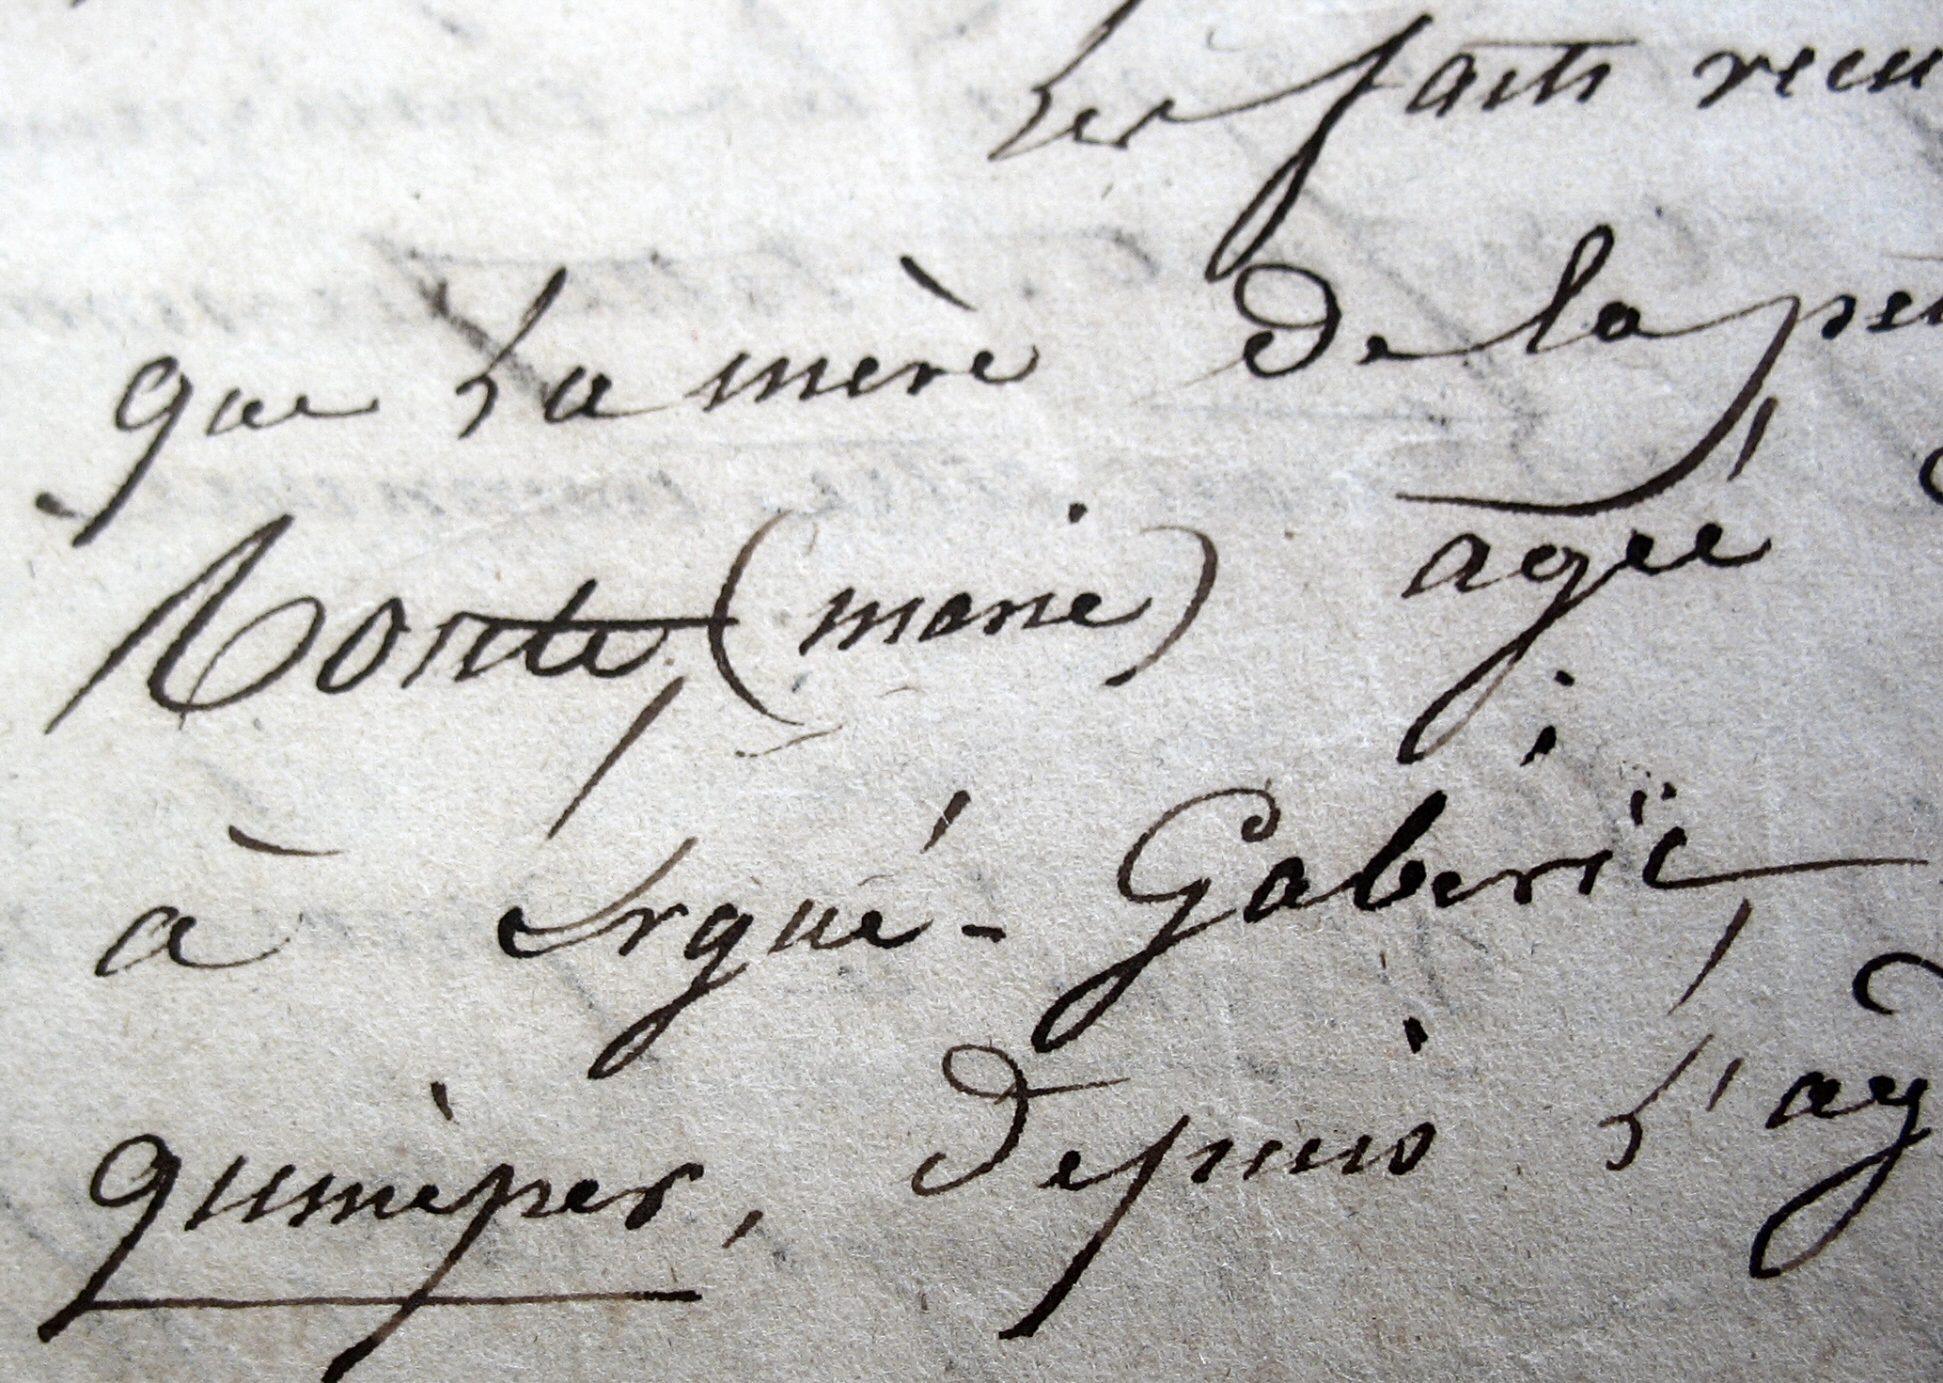 Les faits recu
que La mère de la pe
(marie) agée
à Ergué-Gabéric,
quimper, depuis l'ag